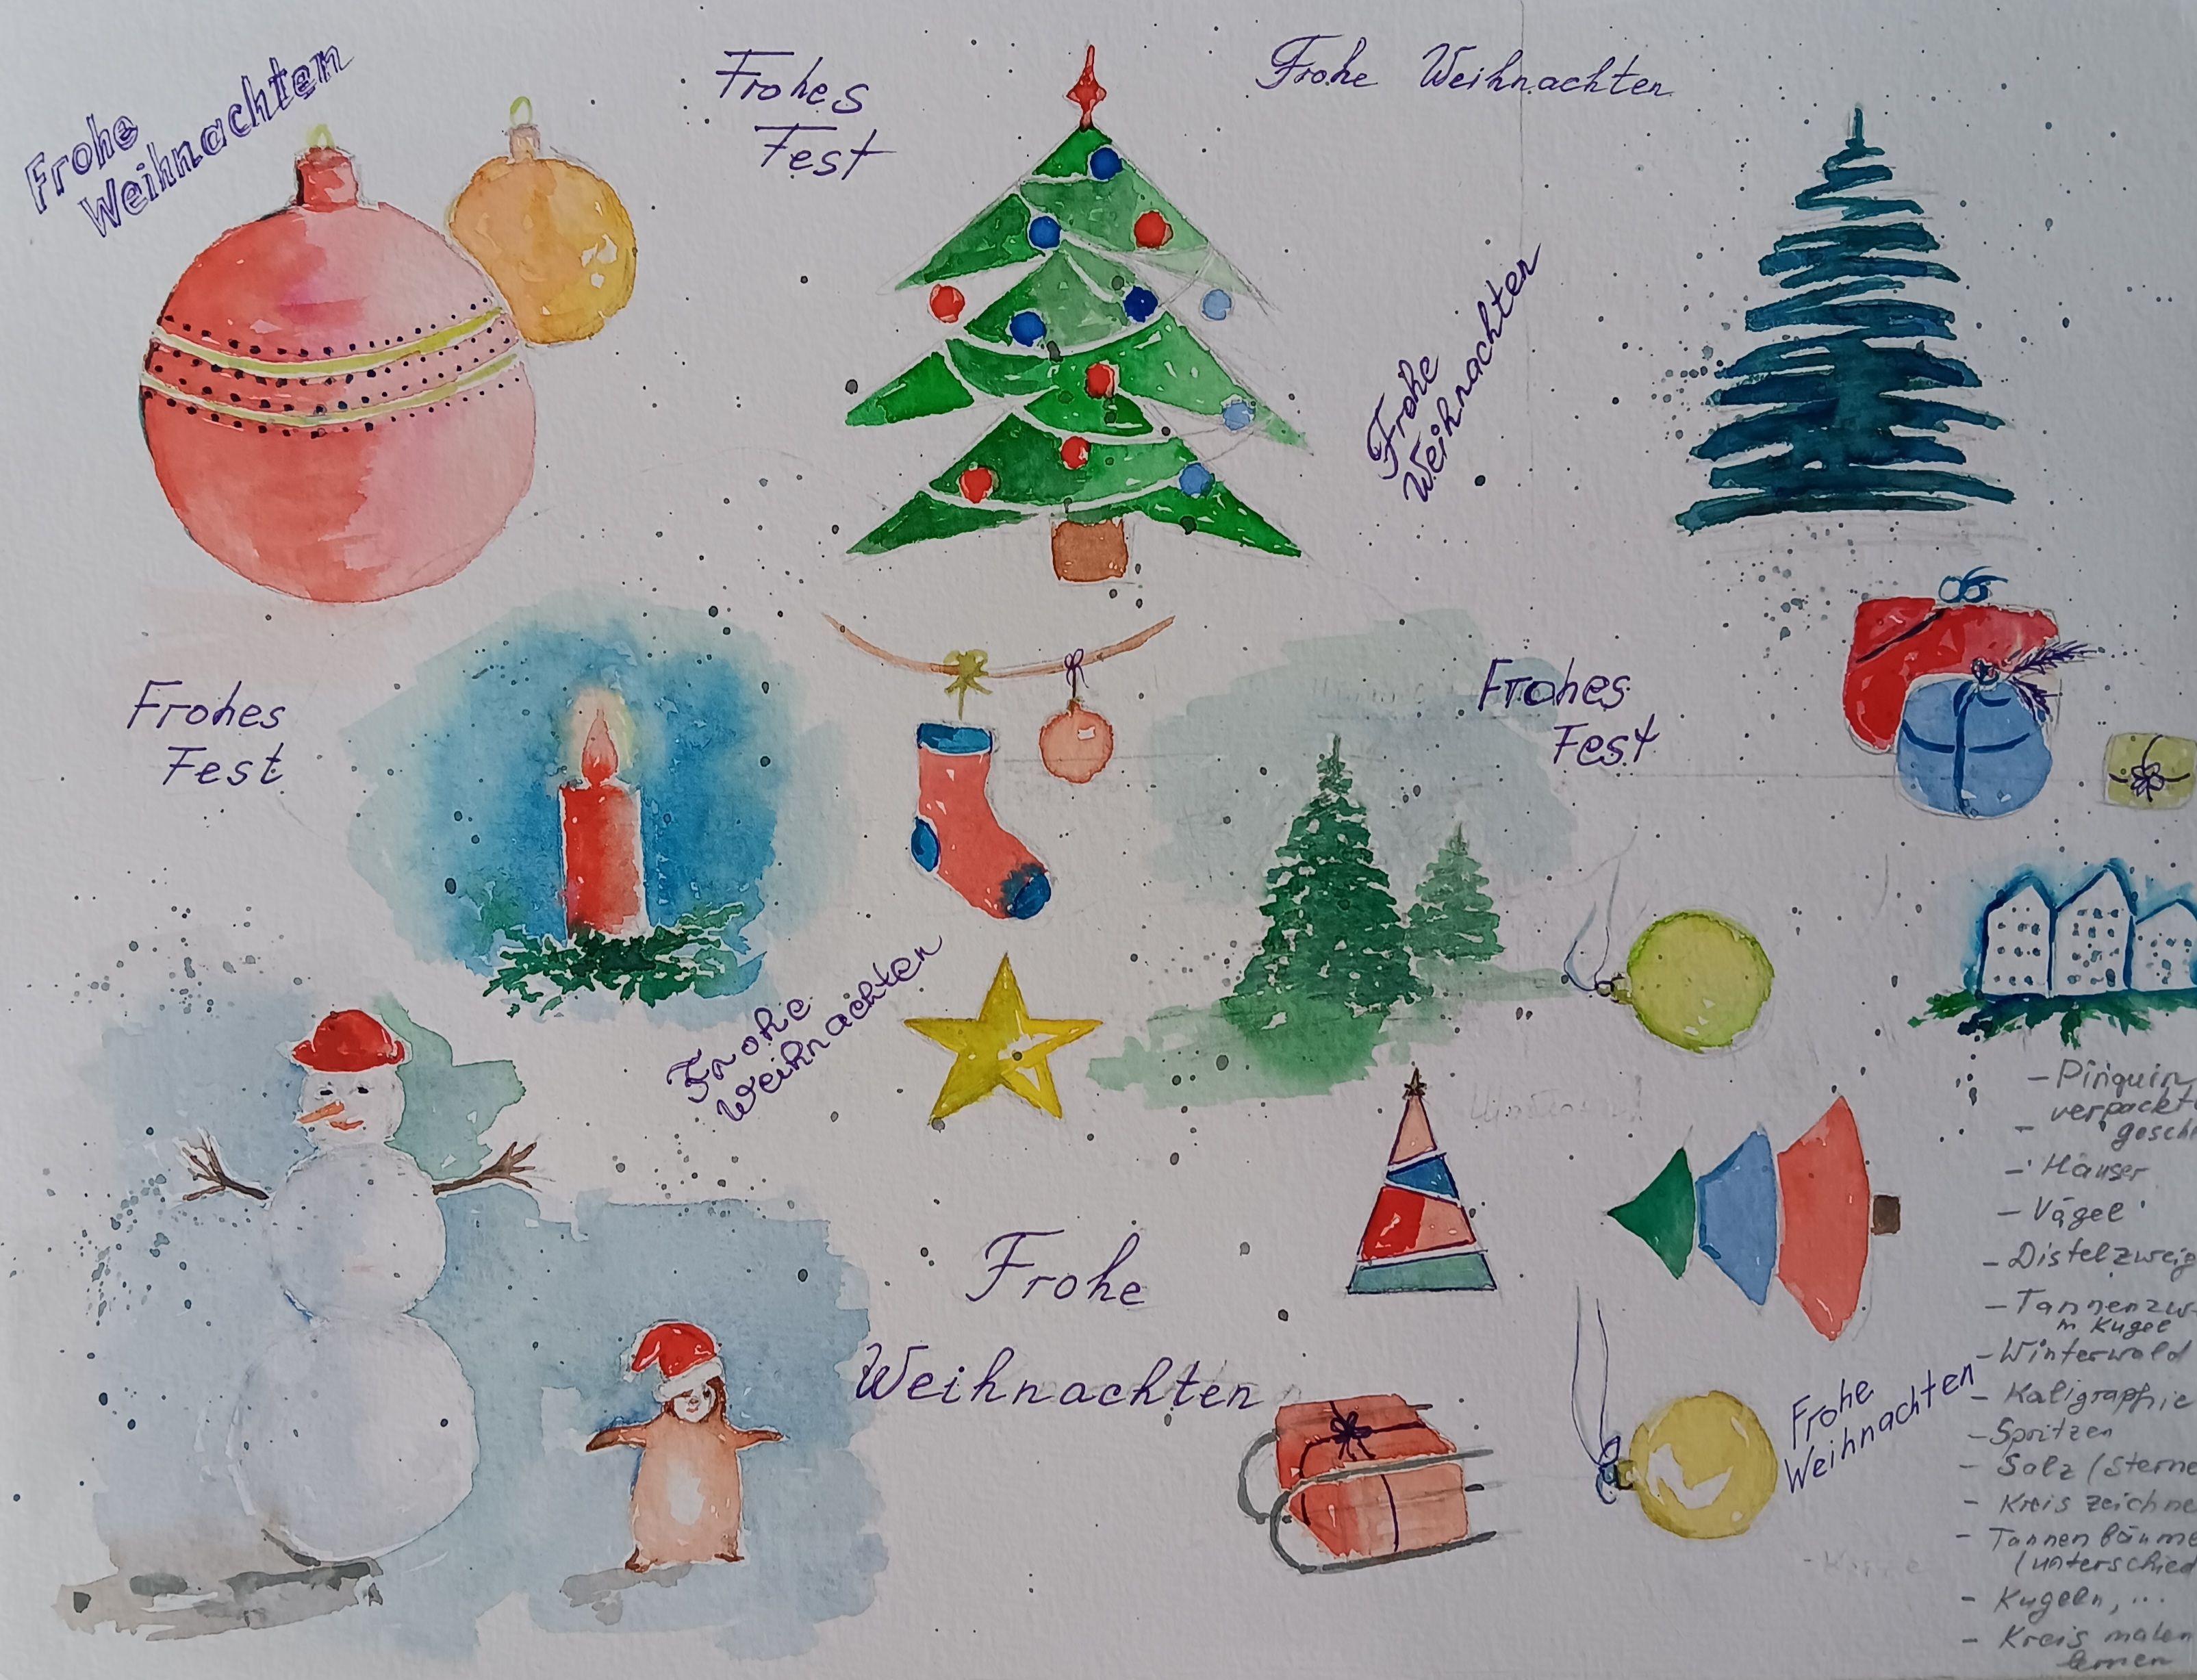 Frohe
Weihnachten
Frohes
Fest
Frohe Weihnachten
Frohe
Weihnachten
Frohes
Fest
Frohes
Fest
Frohe
Weihnachten
Frohe
Weihnachten
Frohe
Weihnachten
- Pinquin
verpackt
- gesch
- Häuser
- Vägel
- Distelzweig
- Tannenzw
m Kugel
- Winterwald
- Kaligraphie
- Spritzen
- Salz (Sterne
- Kreis zeichne
- Tannenbäume
(unterschied
- Kugeln, ...
- Kreis malen
lernen